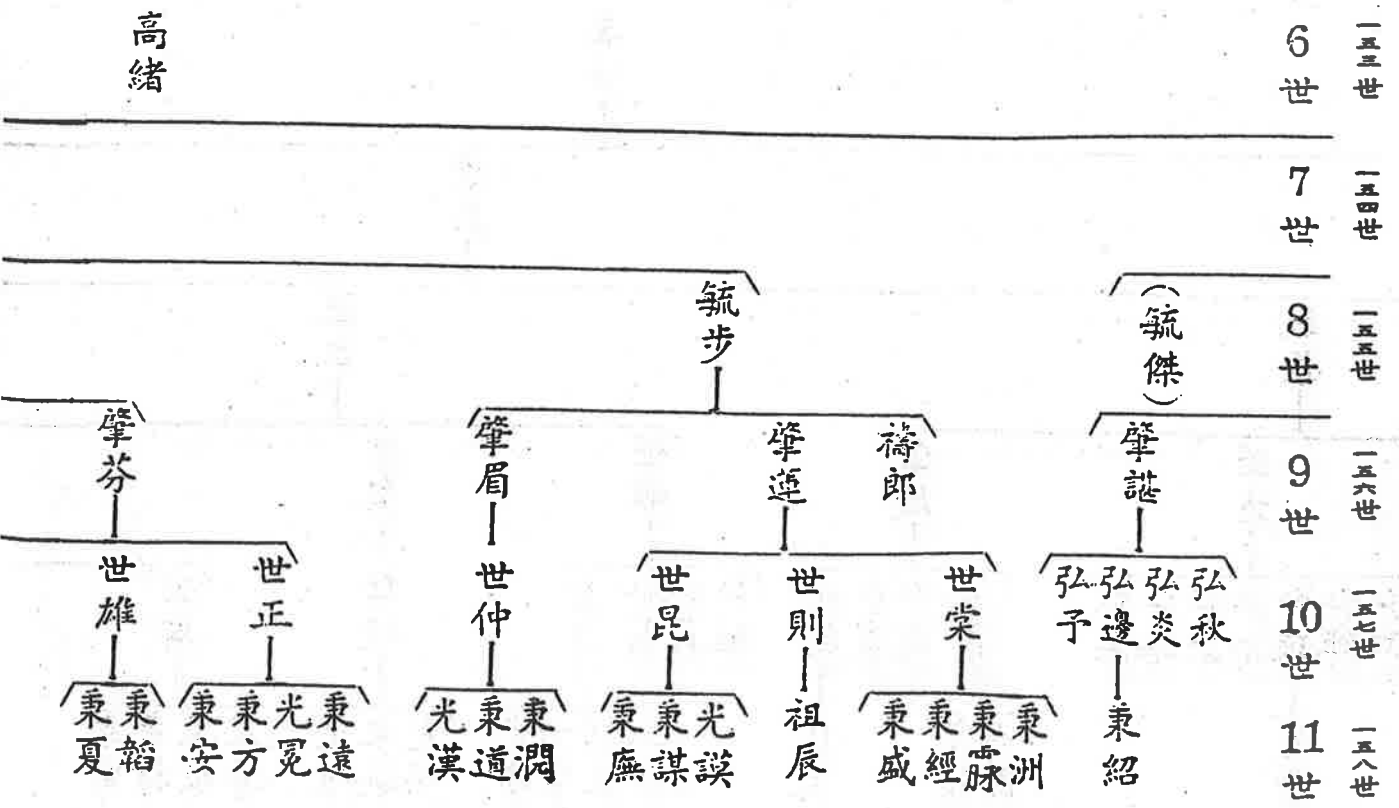 一五三世
6世
高緒
一五四世
7世
一五五世
8世
(毓傑)
毓步
一五六世
9世
肇諶
禱郎
肇蓮
肇眉
肇芬
一五七世
10世
弘秋
弘炎
弘邊
弘予
世棠
世則
世昆
世仲
世正
世雄
一五八世
11世
秉紹
秉洲
秉霢
秉經
秉盛
祖辰
光謨
秉謀
秉廡
秉澗
秉道
光漢
秉遠
光冕
秉方
秉安
秉韜
秉夏